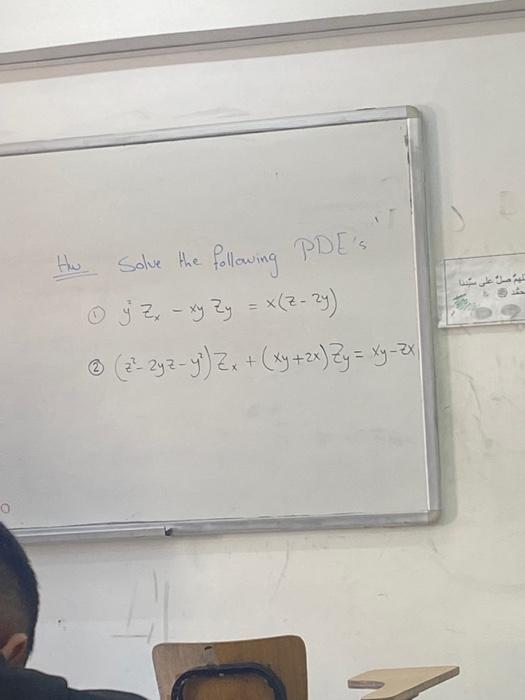 Hw Solve the following PDE's
① y² Zx - xy Zy = x(z - 2y)
② (z² - 2yz - y²) Zx + (xy + zx) Zy = xy - zx
اللهم صل على سيدنا
محمد ﷺ